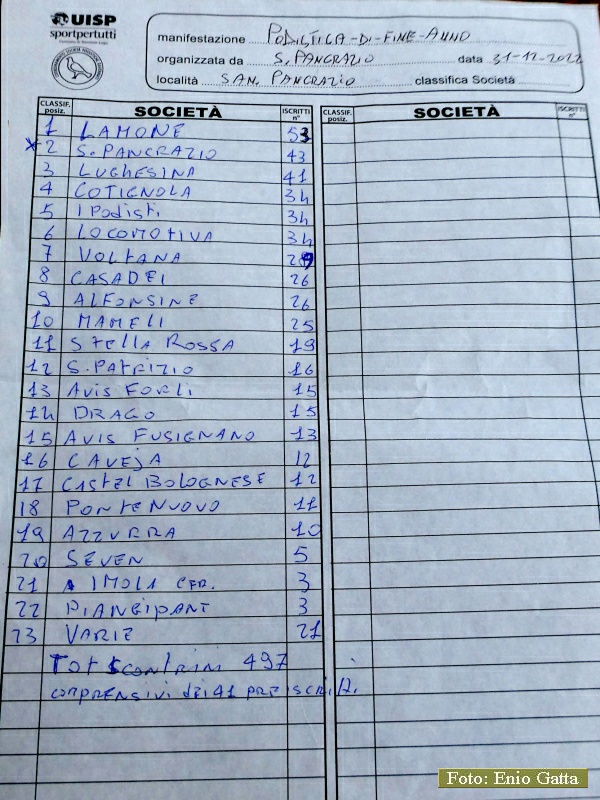 UISP
sportpertutti
manifestazione PODISTICA-DI-FINE-ANNO
organizzata da S. PANCRAZIO data 31-12-2022
località SAN. PANCRAZIO classifica Società
CLASSIF. posiz. SOCIETÀ ISCRITTI n° CLASSIF. posiz. SOCIETÀ ISCRITTI n°
1 LAMONE 53
x2 S. PANCRAZIO 43
3 LUGHESINA 41
4 COTIGNOLA 34
5 I Podisti 34
6 LOCOMOTIVA 34
7 VOLTANA 29
8 CASADEI 26
9 ALFONSINE 26
10 MAMELI 25
11 STELLA ROSSA 19
12 S. PATRIZIO 16
13 AVIS FORLI 15
14 DRAGO 15
15 AVIS FUSIGNANO 13
16 CAVEJA 12
17 CASTEL BOLOGNESE 12
18 PONTENUOVO 11
19 AZZURRA 10
20 SEVEN 5
21 IMOLA CER. 3
22 PIANGIPANT 3
23 VARIE 21
TOT SCONTRIN 497
COMPRENSIVI DEI 41 PREISCRITTI.
Foto: Enio Gatta